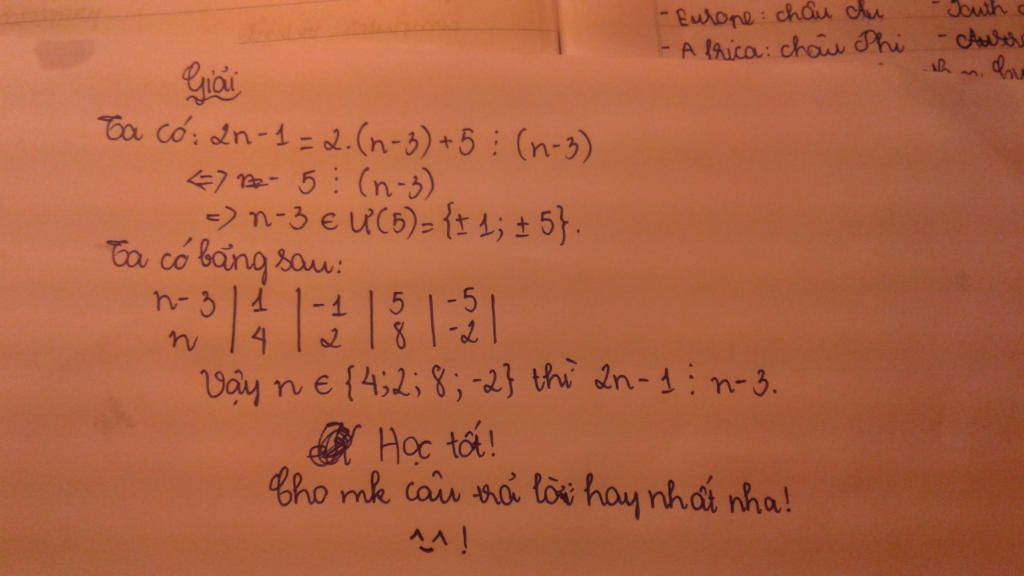 - Europe: châu Âu - South
- Africa: châu Phi
Giải
Ta có: 2n-1 = 2.(n-3)+5 ⋮ (n-3)
<=> 5 ⋮ (n-3)
=> n-3 ∈ Ư(5) = {±1; ±5}.
Ta có bảng sau:
n-3 | 1 | -1 | 5 | -5 |
n | 4 | 2 | 8 | -2 |
Vậy n ∈ {4;2; 8; -2} thì 2n-1 ⋮ n-3.
Học tốt!
Cho mk câu trả lời hay nhất nha!
^-^!